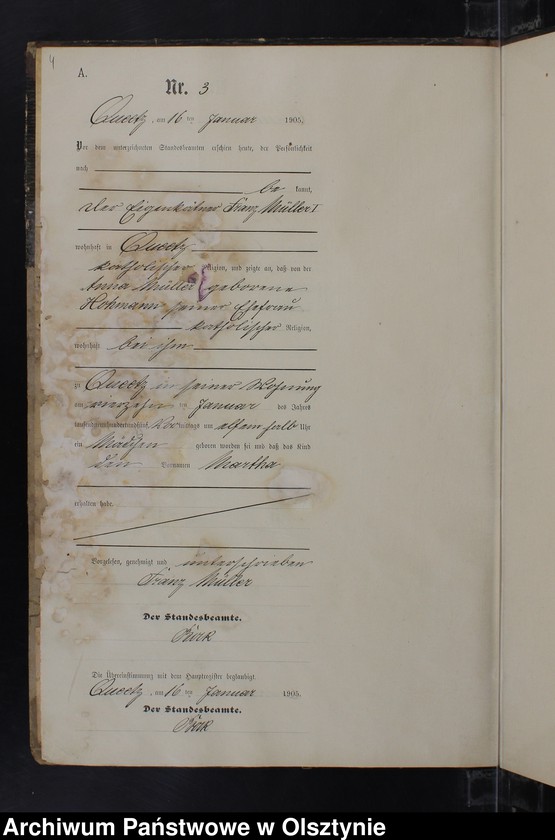 4
A.
Nr. 3
Queetz, am 16 ten Januar 1905.
Vor dem unterzeichneten Standesbeamten erschien heute, der Persönlichkeit
nach
be kannt,
der Eigenkätner Franz Müller I
wohnhaft in Queetz
katholischer Religion, und zeigte an, daß von der
Anna Müller geborene
Hohmann seiner Ehefrau
katholischer Religion,
wohnhaft bei ihm
zu Queetz in seiner Wohnung
am vierzehn ten Januar des Jahres
tausendneunhundertundfünf, Vor mittags um elfeinhalb Uhr
ein Mädchen geboren worden sei und daß das Kind
den Vornamen Martha
erhalten habe.
Vorgelesen, genehmigt und unterschrieben
Franz Müller
Der Standesbeamte.
Die Übereinstimmung mit dem Hauptregister beglaubigt.
Queetz, am 16 ten Januar 1905.
Der Standesbeamte.
Archiwum Państwowe w Olsztynie